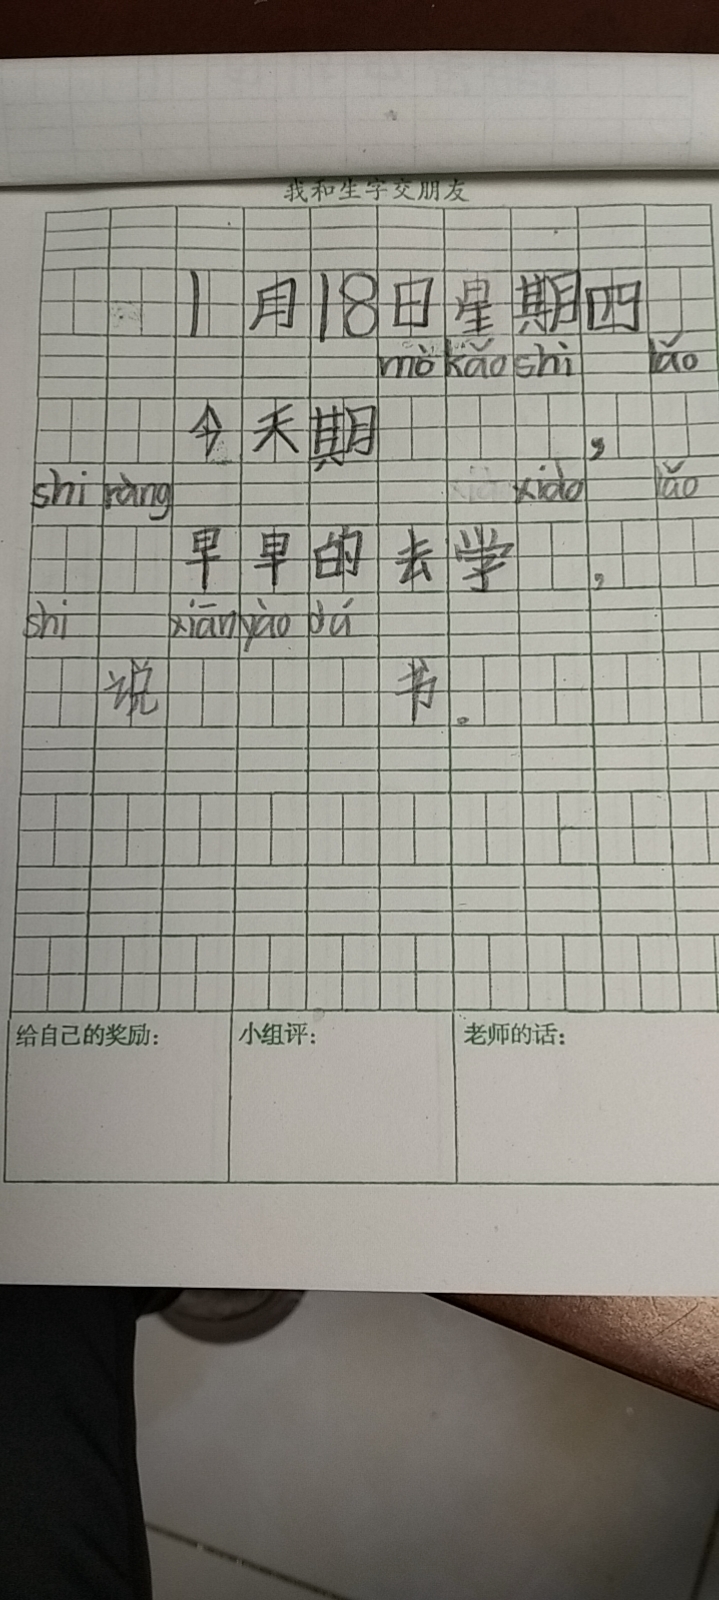 我和生字交朋友
1月18日星期四
mò kǎo shì lǎo
今天期，
shi ràng xiào lǎo
早早的去学，
shi xiān yào dú
说书。
给自己的奖励： 小组评： 老师的话：